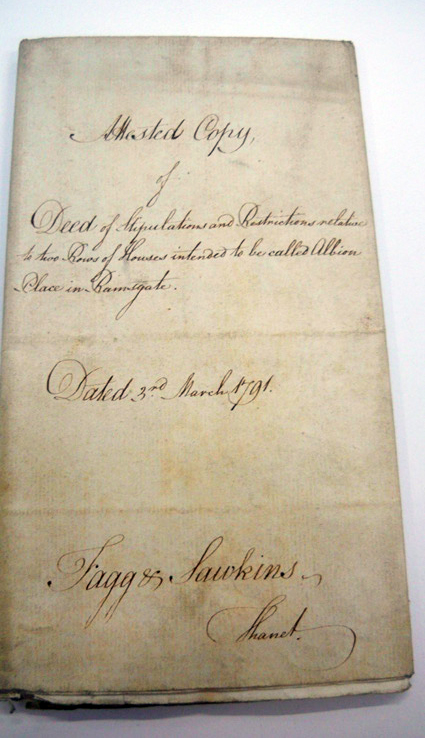 Attested Copy,
of
Deed of Stipulations and Restrictions relative
to two Rows of Houses intended to be called Albion
Place in Ramsgate.
Dated 3rd March 1791.
Fagg & Sawkins
Thanet.